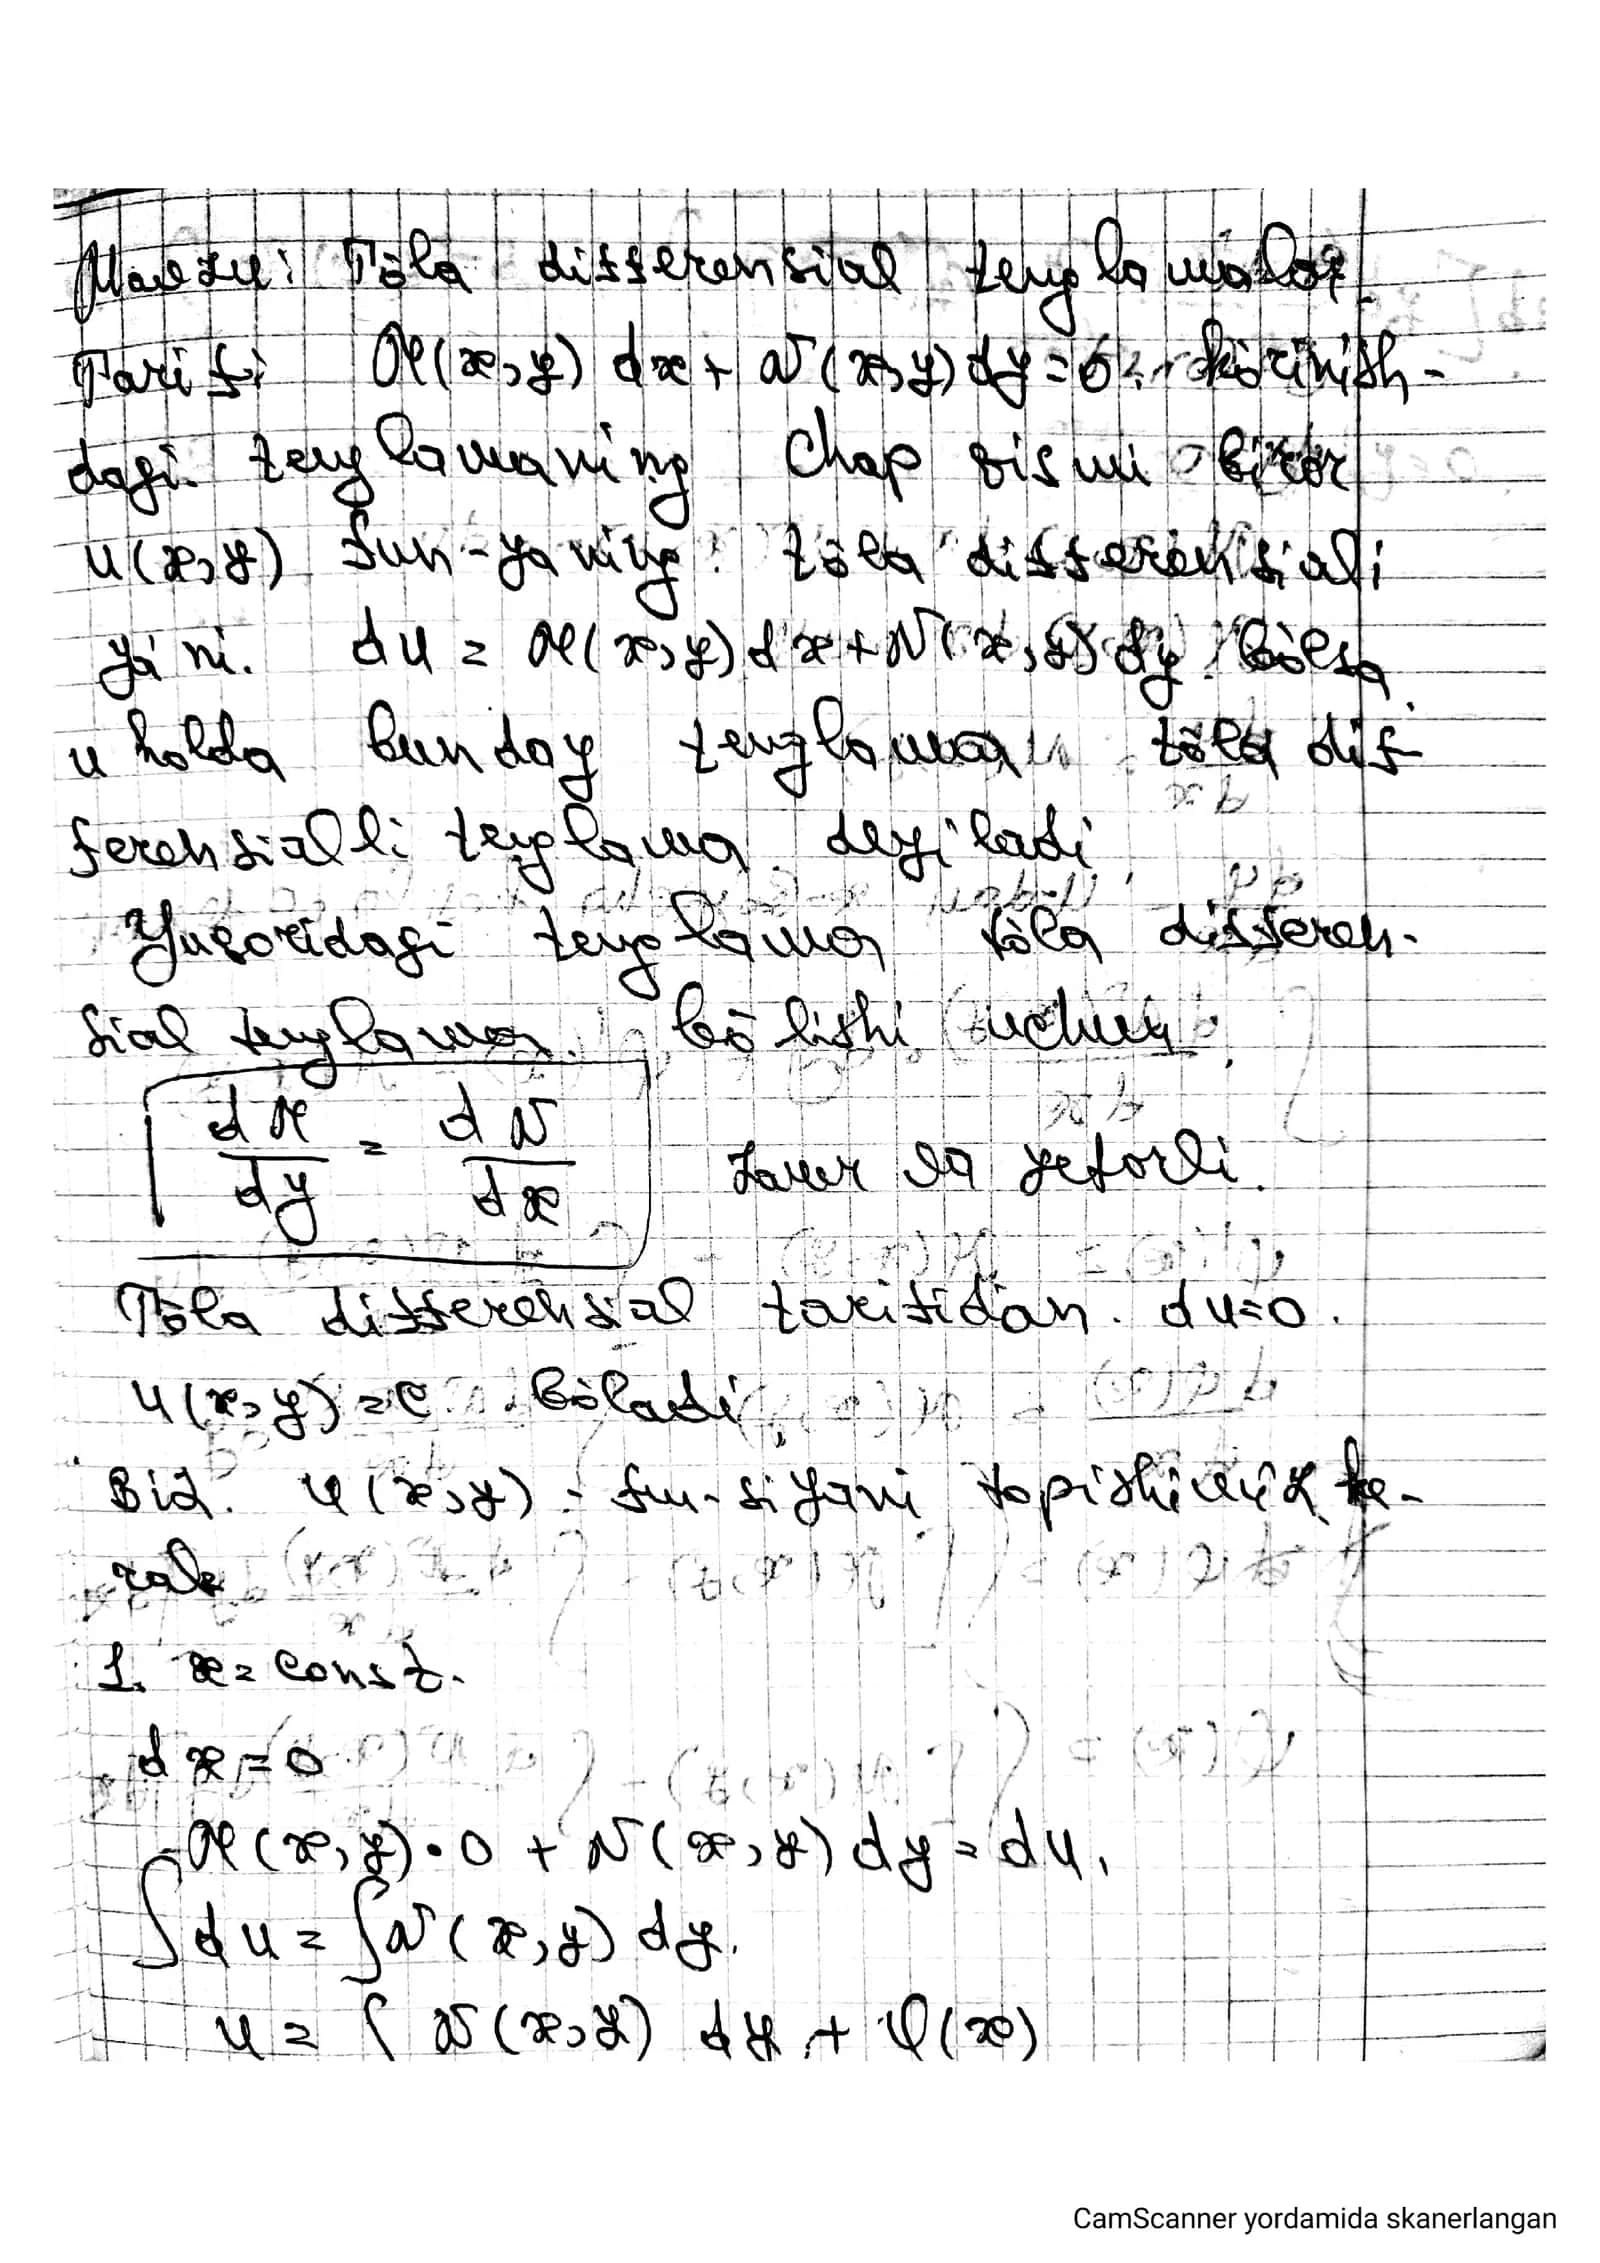 Mavzu: Tõla differensial tenglamalar.
Tarif: M(x,y) dx + N(x,y) dy = 0. kõrinish-
dagi tenglamaning Chap qismi biror
u(x,y) fun-yaning tõla differensiali
yá ni. du = M(x,y)dx + N(x,y) dy bõlsa,
u holda bunday tenglama tõla dif-
ferensialli tenglama deyiladi.
Yuqoridagi tenglama tõla differen-
sial tenglama bõ lishi uchun
dM/dy = dN/dx zarur va yetarli.
Tõla differensial tarifidan. du=0.
u(x,y)=C bõladi.
Biz. u(x,y) - fun-siyani topishimiz ke-
rak
1. x = const.
dx = 0
M(x,y)·0 + N(x,y) dy = du.
∫du = ∫N(x,y) dy.
u = ∫ N(x,y) dy + φ(x)
CamScanner yordamida skanerlangan